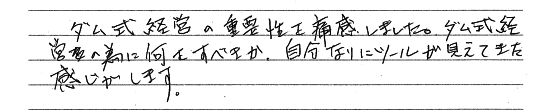 ダム式経営の重要性を痛感しました。ダム式経
営の為に何をすべきか、自分なりにツールが見えてきた
感じがします。